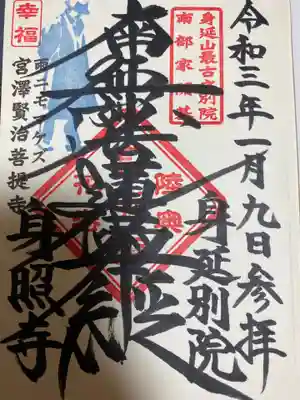 令和三年一月九日参拝
身延別院
身延山最古の別院
南無妙法蓮華経
陸奥
幸福
雨ニモマケズ
宮澤賢治菩提寺
身照寺